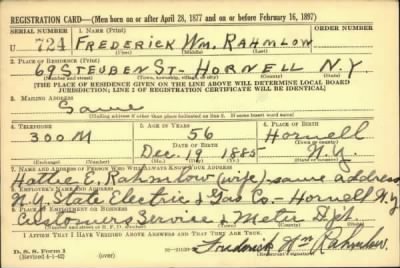 REGISTRATION CARD—(Men born on or after April 28, 1877 and on or before February 16, 1897)
SERIAL NUMBER 1. NAME (Print) ORDER NUMBER
U 724 FREDERICK WM. RAHMLOW
2. PLACE OF RESIDENCE (Print)
69 STEUBEN ST - HORNELL N.Y.
(Number and street) (Town, township, village, or city) (County) (State)
[THE PLACE OF RESIDENCE GIVEN ON THE LINE ABOVE WILL DETERMINE LOCAL BOARD
JURISDICTION; LINE 2 OF REGISTRATION CERTIFICATE WILL BE IDENTICAL]
3. MAILING ADDRESS
Same
[Mailing address if other than place indicated on line 2. If same insert word same]
4. TELEPHONE 5. AGE IN YEARS 6. PLACE OF BIRTH
300M 56 Hornell
DATE OF BIRTH (Town or county)
Dec. 19 1885 N.Y.
(Exchange) (Number) (Mo.) (Day) (Yr.) (State or country)
7. NAME AND ADDRESS OF PERSON WHO WILL ALWAYS KNOW YOUR ADDRESS
Hattie E. Rahmlow (wife) same address
8. EMPLOYER'S NAME AND ADDRESS
N.Y. State Electric & Gas Co - Hornell N.Y.
9. PLACE OF EMPLOYMENT OR BUSINESS
Customers Service & Meter Dpt.
(Number and street or R. F. D. number) (Town) (County) (State)
I AFFIRM THAT I HAVE VERIFIED ABOVE ANSWERS AND THAT THEY ARE TRUE.
D. S. S. Form 1
(Revised 4-1-42) (over) Frederick Wm Rahmlow.